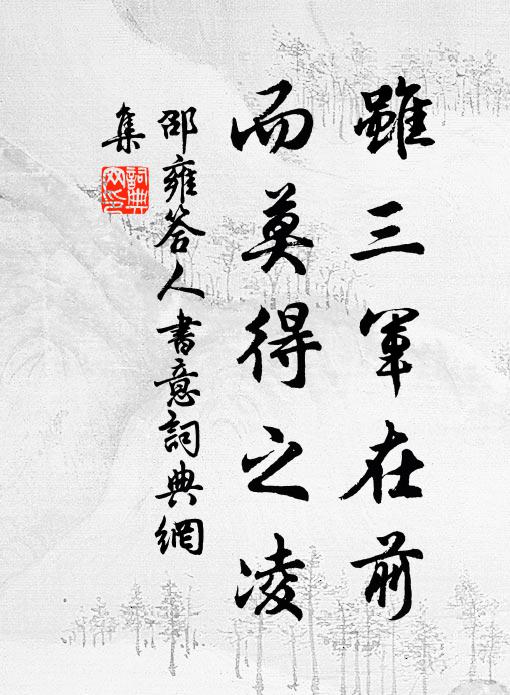 雖三軍在前
而莫得之凌
邵雍答人書意詞典網
集
詞典網印